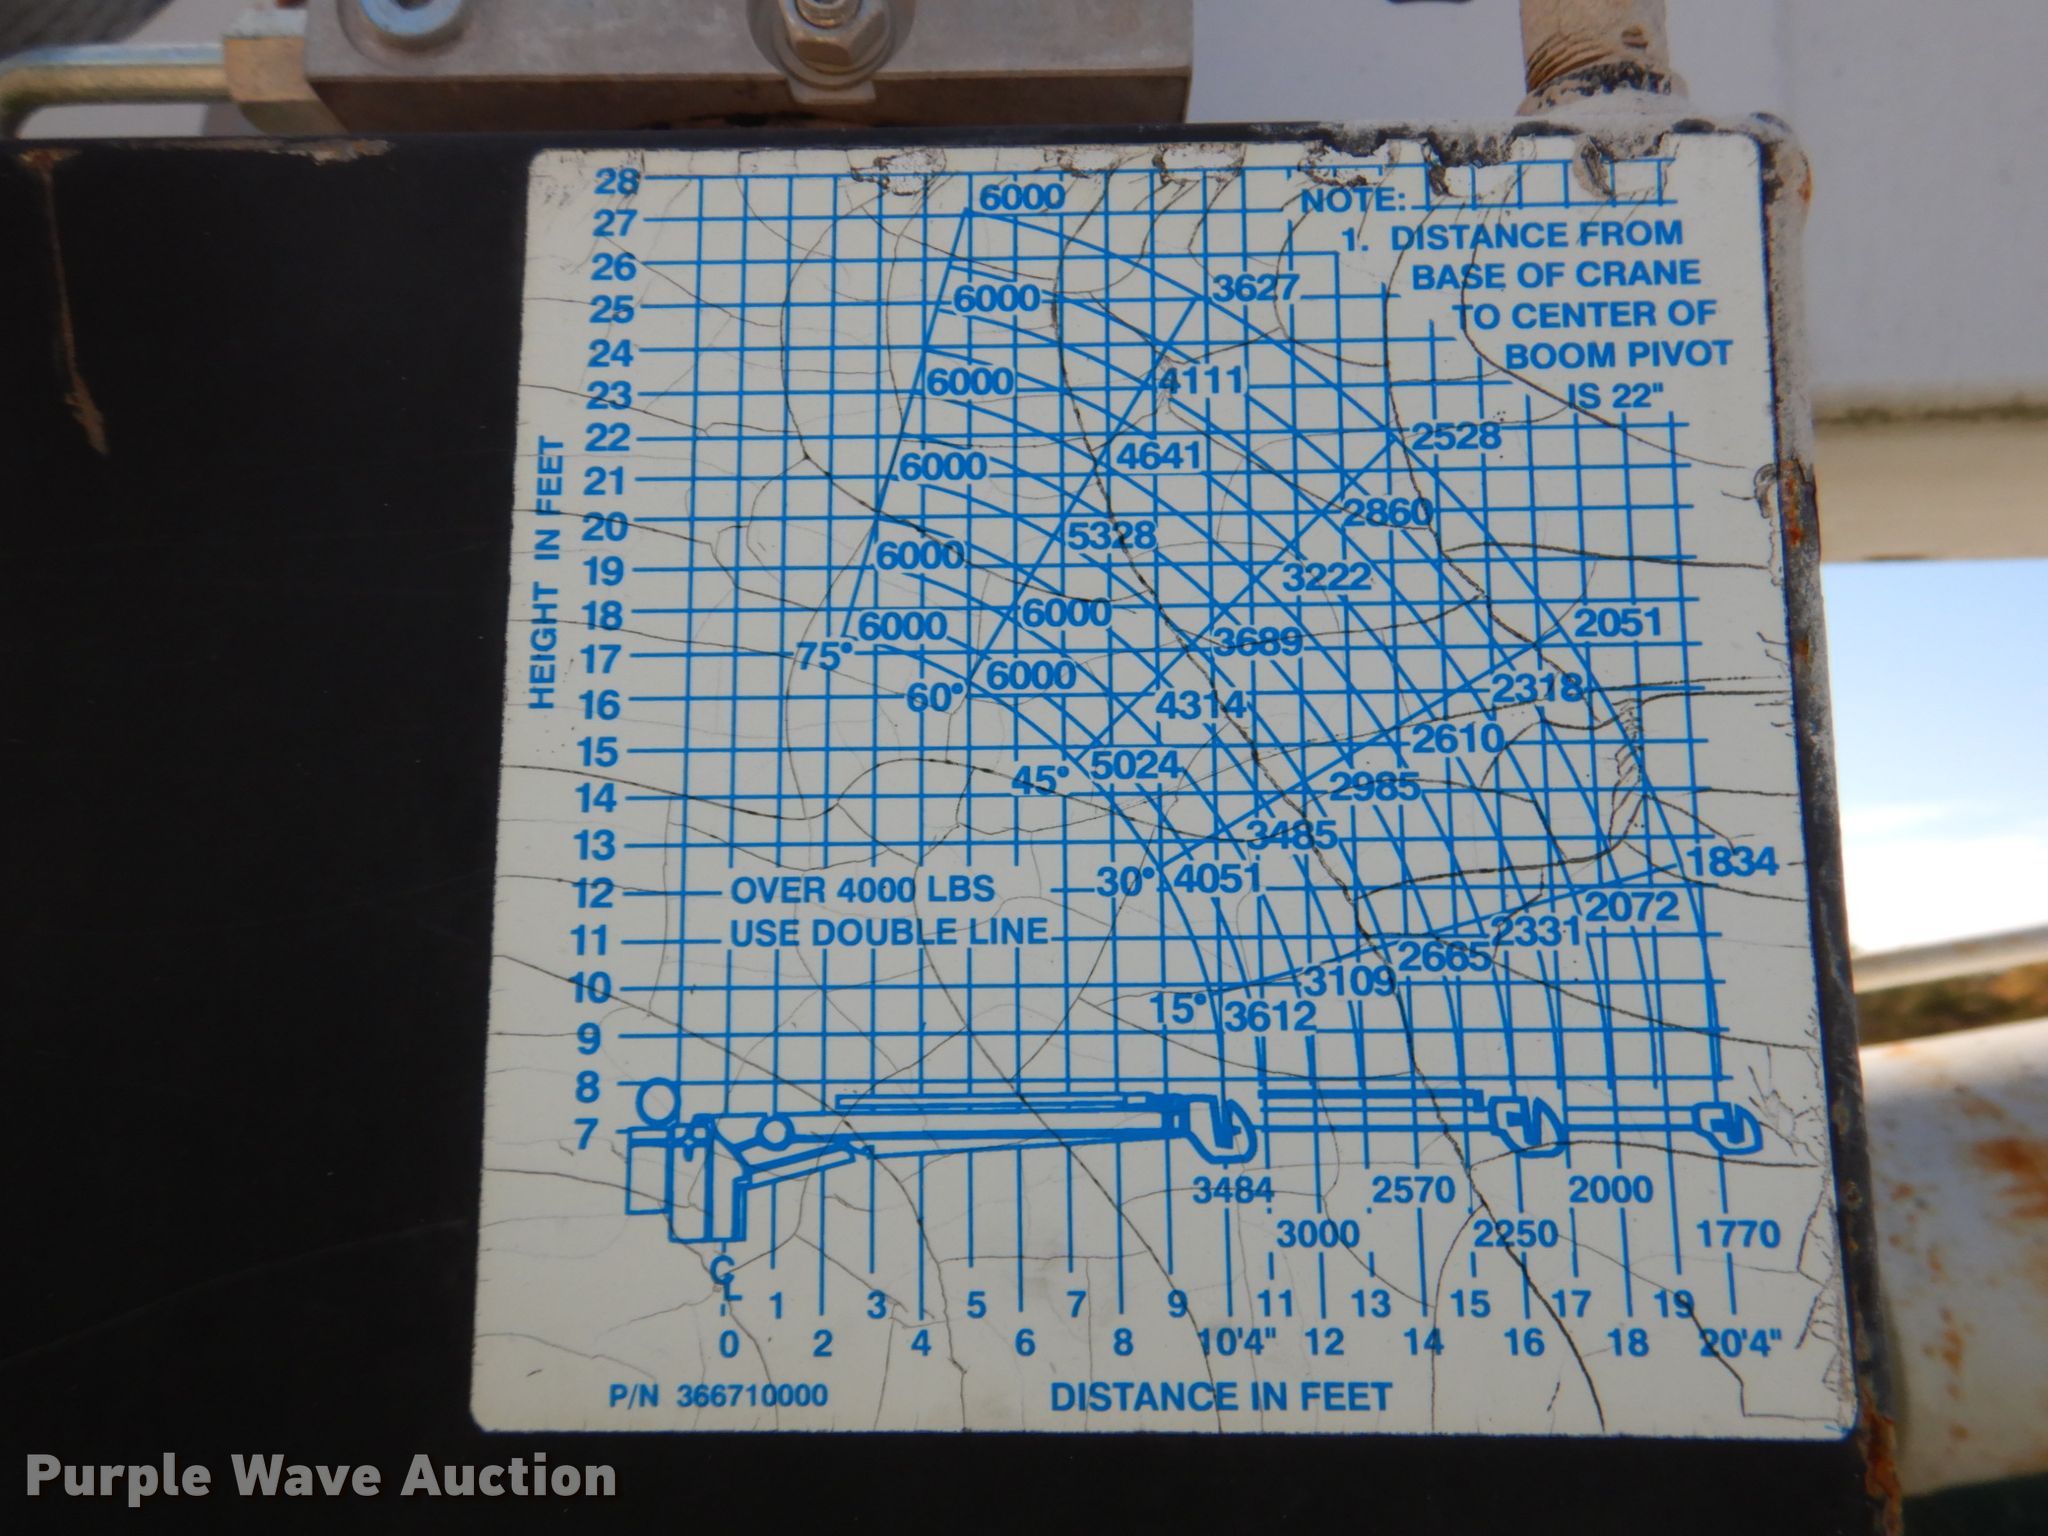 28 6000 NOTE:
27 1. DISTANCE FROM
26 BASE OF CRANE
25 6000 3627 TO CENTER OF
24 BOOM PIVOT
23 6000 4111 IS 22"
22 2528
21 6000 4641
20 5328 2860
19 6000 3222
18 6000 6000 2051
17 75° 3689
16 60° 6000 4314 2318
15 45° 5024 2610
14 2985
13 3485
12 OVER 4000 LBS 30° 4051 1834
11 USE DOUBLE LINE 2331 2072
10 3109 2665
9 15° 3612
8
7
HEIGHT IN FEET
3484 2570 2000
3000 2250 1770
CL 1 3 5 7 9 11 13 15 17 19
0 2 4 6 8 10'4" 12 14 16 18 20'4"
P/N 366710000 DISTANCE IN FEET
Purple Wave Auction